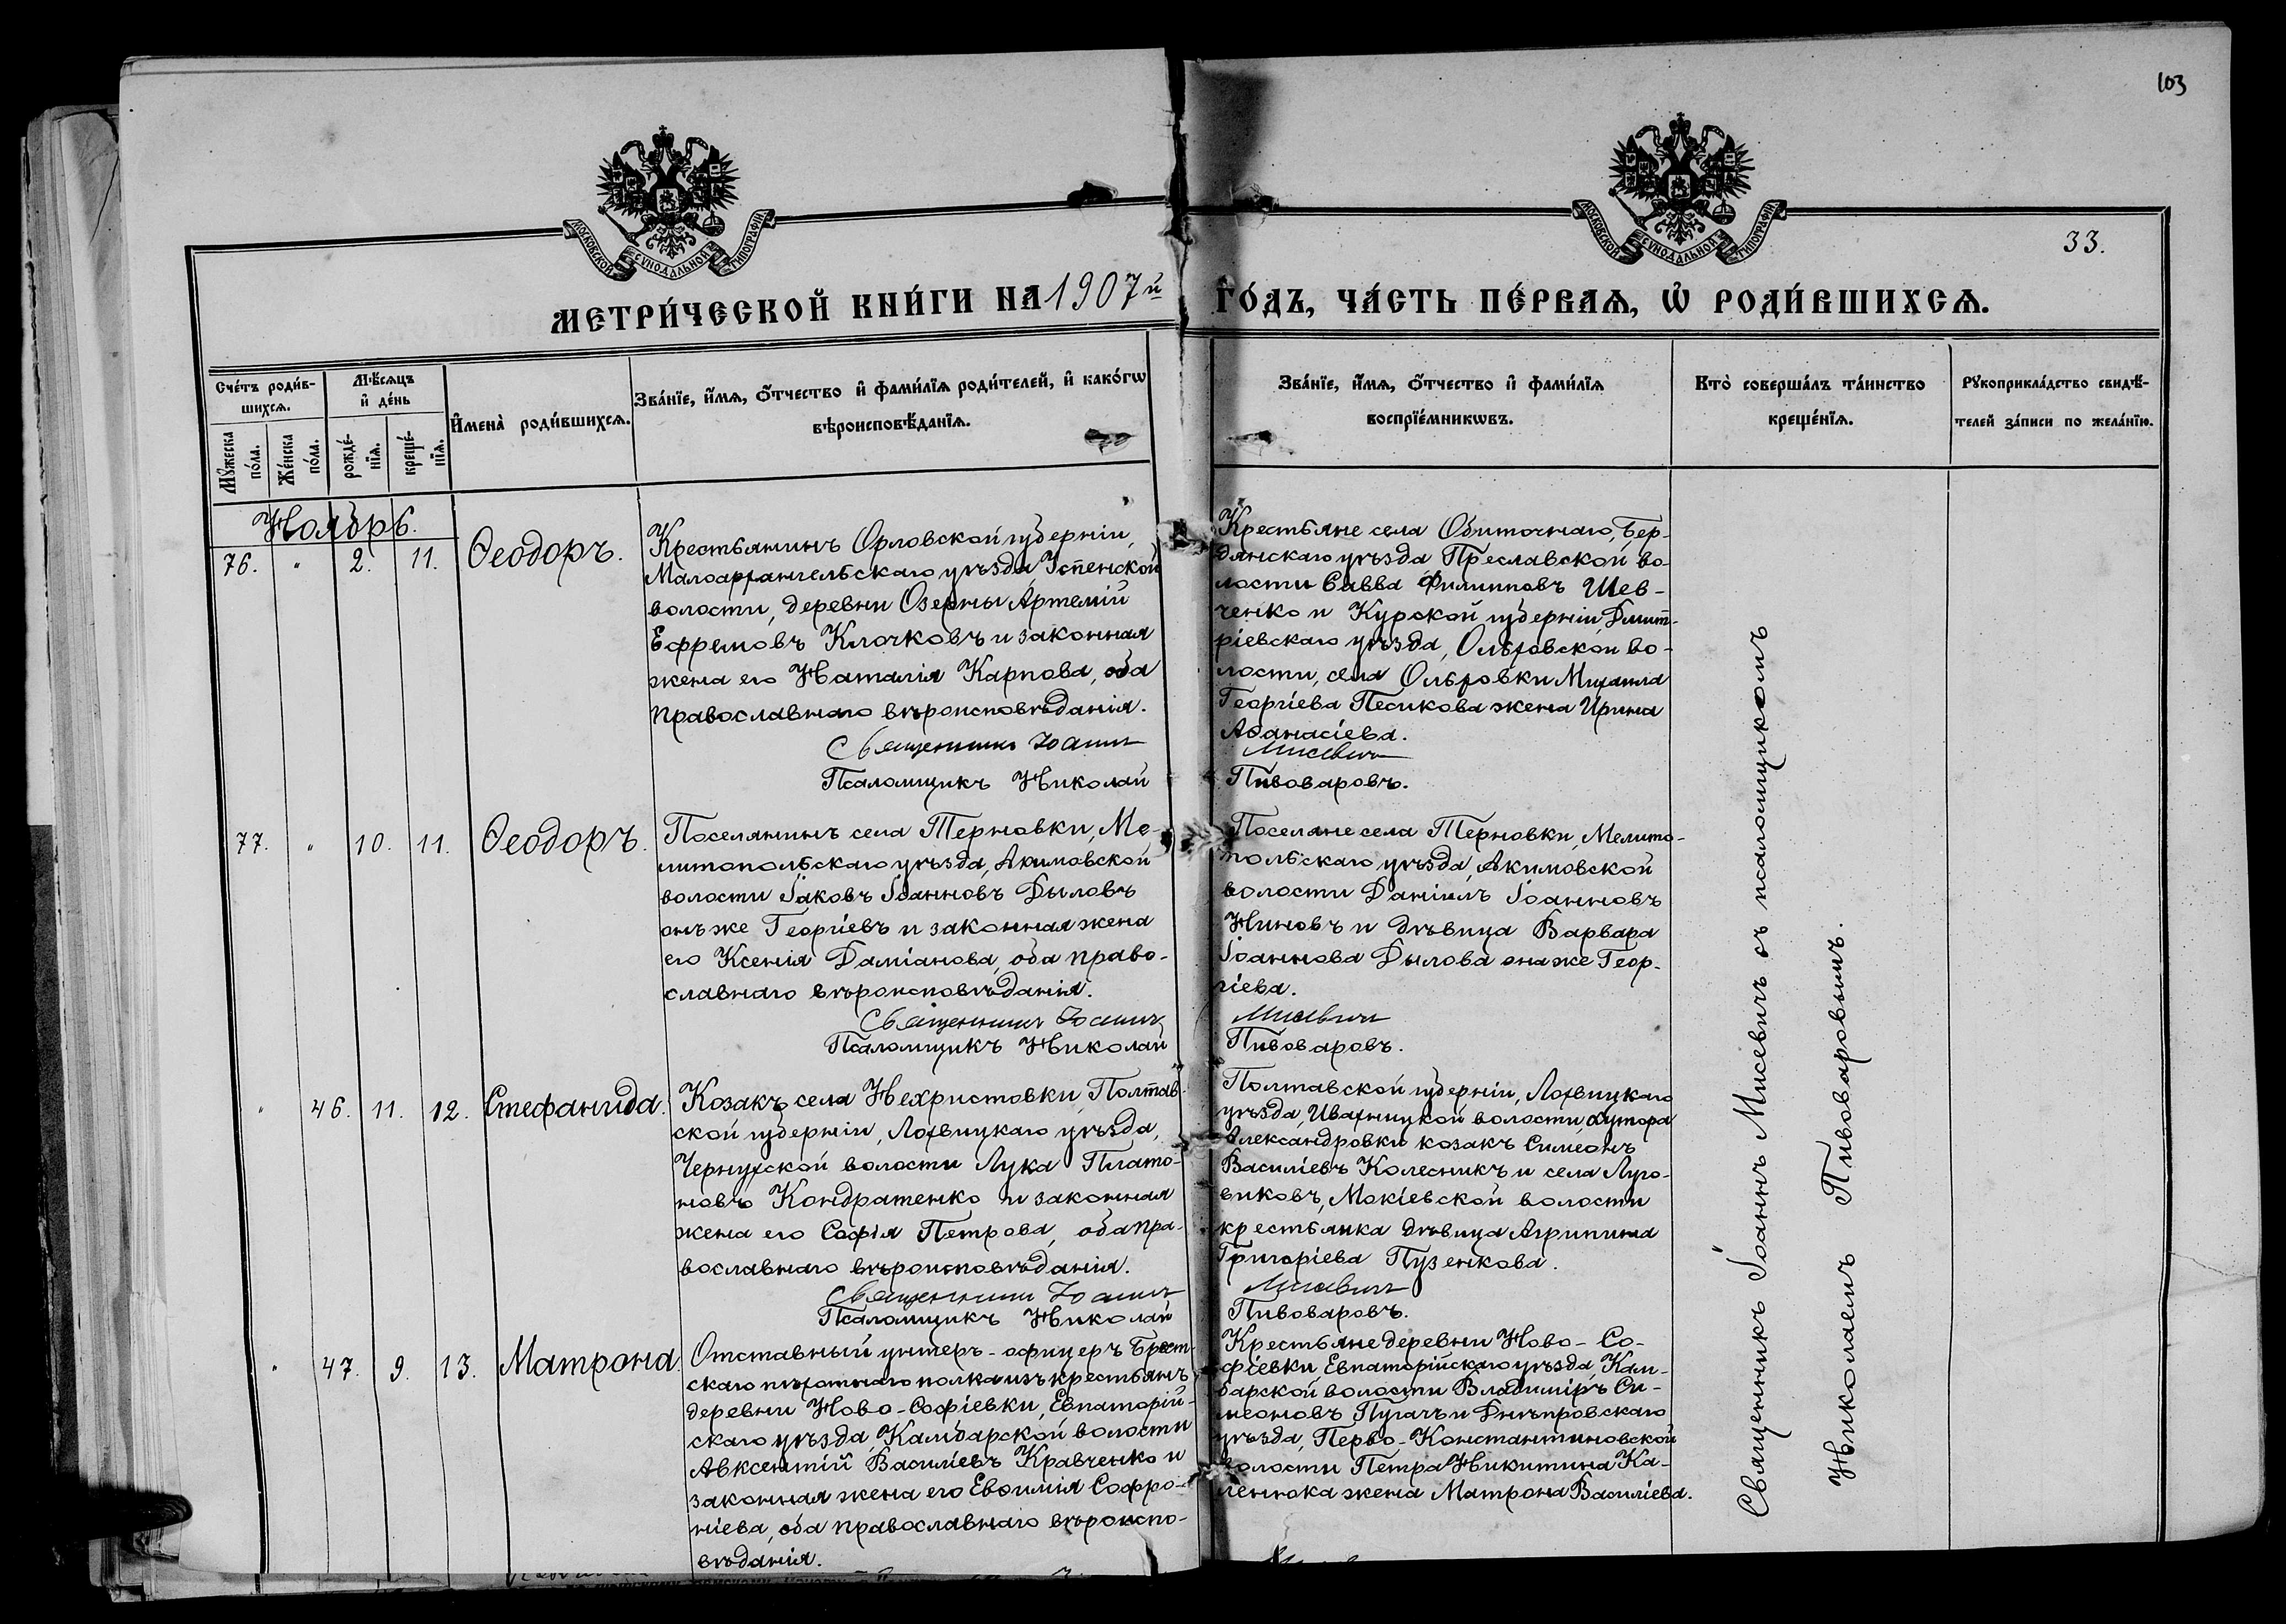 103
МОСКОВСКОЙ СѴНОДАЛЬНОЙ ТИПОГРАФІИ
МОСКОВСКОЙ СѴНОДАЛЬНОЙ ТИПОГРАФІИ
33.
МЕТРИ́ЧЕСКОЙ КНИ́ГИ НА 1907й ГО́ДЪ, ЧА́СТЬ ПЕ́РВАѦ, Ѡ РОДИ́ВШИХСѦ.
Сче́тъ роди́в-
шихсѧ.
Мꙋжеска
по́ла.
Же́нска
по́ла.
Мѣ́сѧцъ
и҆ де́нь
рожде́-
нїѧ.
креще́-
нїѧ.
И҆мена̀ роди́вшихсѧ.
Зва́нїе, и҆́мѧ, ѻ҆́тчество и҆ фами́лїѧ роди́телей, и҆ како́гѡ
вѣроисповѣ́данїѧ.
Зва́нїе, и҆́мѧ, ѻ҆́тчество и҆ фами́лїѧ
воспрїе́мникѡвъ.
Кто̀ соверша́лъ та́инство
креще́нїѧ.
Рꙋкоприкла́дство свидѣ́-
телей за́писи по жела́нїю.
Ноябрь.
76. " 2. 11. Ѳеодоръ.
Крестьянинъ Орловской губерніи,
Малоархангельскаго уѣзда Успенской
волости, деревни Озерны Артемій
Ефремовъ Клочковъ и законная
жена его Наталія Карпова, оба
православнаго вѣроисповѣданія.
Священникъ Іоаннъ
Псаломщикъ Николай
Крестьяне села Обиточнаго, Бер-
дянскаго уѣзда Преславской во-
лости Савва Филипповъ Шев-
ченко и Курской губерніи, Дмит-
ріевскаго уѣзда, Ольховской во-
лости, села Ольховки Михаила
Георгіева Песикова жена Ирина
Аѳанасіева.
Мисевичъ
Пивоваровъ.
77. " 10. 11. Ѳеодоръ.
Поселянинъ села Терновки, Ме-
литопольскаго уѣзда, Акимовской
волости Іаковъ Іоанновъ Дыловъ
онъ же Георгіевъ и законная жена
его Ксенія Даміанова, оба право-
славнаго вѣроисповѣданія.
Священникъ Іоаннъ
Псаломщикъ Николай
Поселяне села Терновки, Мелито-
польскаго уѣзда, Акимовской
волости Даніилъ Іоанновъ
Ниновъ и дѣвица Варвара
Іоаннова Дылова она же Геор-
гіева.
Мисевичъ
Пивоваровъ.
" 46. 11. 12. Стефанида.
Козакъ села Нехристовки, Полтав-
ской губерніи, Лохвицкаго уѣзда,
Чернухской волости Лука Плато-
новъ Кондратенко и законная
жена его Софія Петрова, оба пра-
вославнаго вѣроисповѣданія.
Священникъ Іоаннъ
Псаломщикъ Николай
Полтавской губерніи, Лохвицкаго
уѣзда, Ивахницкой волости, хутора
Александровки козакъ Симеонъ
Василіевъ Колесникъ и села Луго-
виковъ, Мокіевской волости
крестьянка дѣвица Агрипина
Григоріева Пузенкова.
Мисевичъ
Пивоваровъ.
" 47. 9. 13. Матрона.
Отставный унтеръ-офицеръ Брест-
скаго пѣхотнаго полка изъ крестьянъ
деревни Ново-Софіевки, Евпаторій-
скаго уѣзда, Камбарской волости
Авксентій Василіевъ Кравченко и
законная жена его Евѳимія Софро-
ніева, оба православнаго вѣроиспо-
вѣданія.
Крестьяне деревни Ново-Со-
фіевки, Евпаторійскаго уѣзда, Кам-
барской волости Владиміръ Си-
меоновъ Пугачъ и Днѣпровскаго
уѣзда, Перво-Константиновской
волости Петра Никитина Ка-
ленюка жена Матрона Василіева.
Священникъ Іоаннъ Мисевичъ съ псаломщикомъ
Николаемъ Пивоваровымъ.